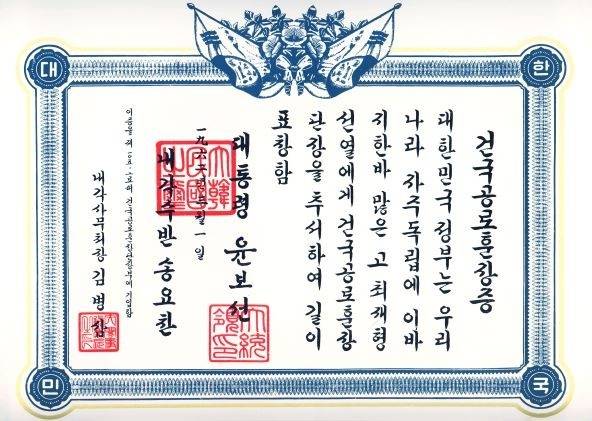 대
한
민
국
건국공로훈장증
대한민국 정부는 우리
나라 자주독립에 이바
지한바 많은 고 최재형
선열에게 건국공로훈장
단장을 추서하여 길이
표창함
대통령 윤보선
大統領印
一九六二년三월一일
大韓民國之璽
내각수반 송요찬
이증을 제 건국공로훈장부에 기입함
내각사무처장 김병삼